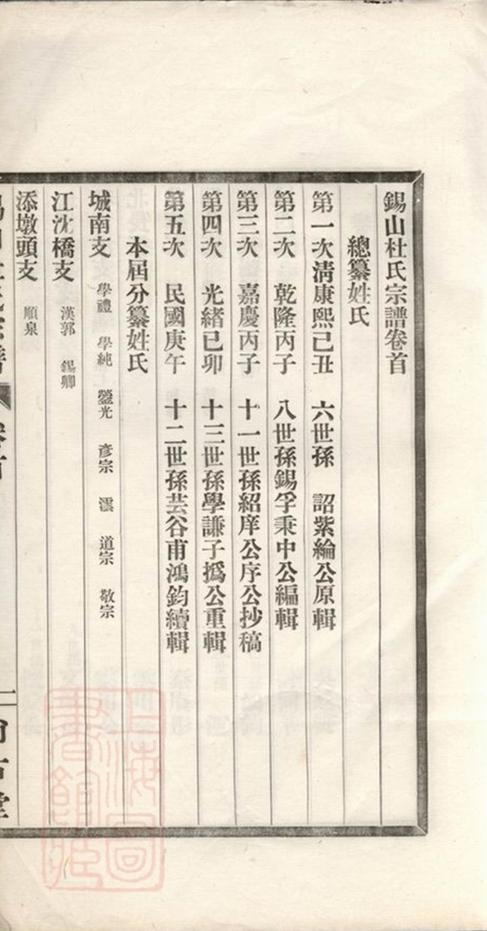 錫山杜氏宗譜卷首
總纂姓氏
第一次清康熙己丑 六世孫 詔紫綸公原輯
第二次 乾隆丙子 八世孫錫孚秉中公編輯
第三次 嘉慶丙子 十一世孫紹庠公序公抄稿
第四次 光緒已卯 十三世孫學謙子撝公重輯
第五次 民國庚午 十二世孫芸谷甫鴻鈞續輯
本屆分纂姓氏
城南支 學禮 學純 鎣光 彥宗 澐 道宗 敬宗
江沈橋支 漢郭 錫卿
添墩頭支 順泉
上海圖書館藏